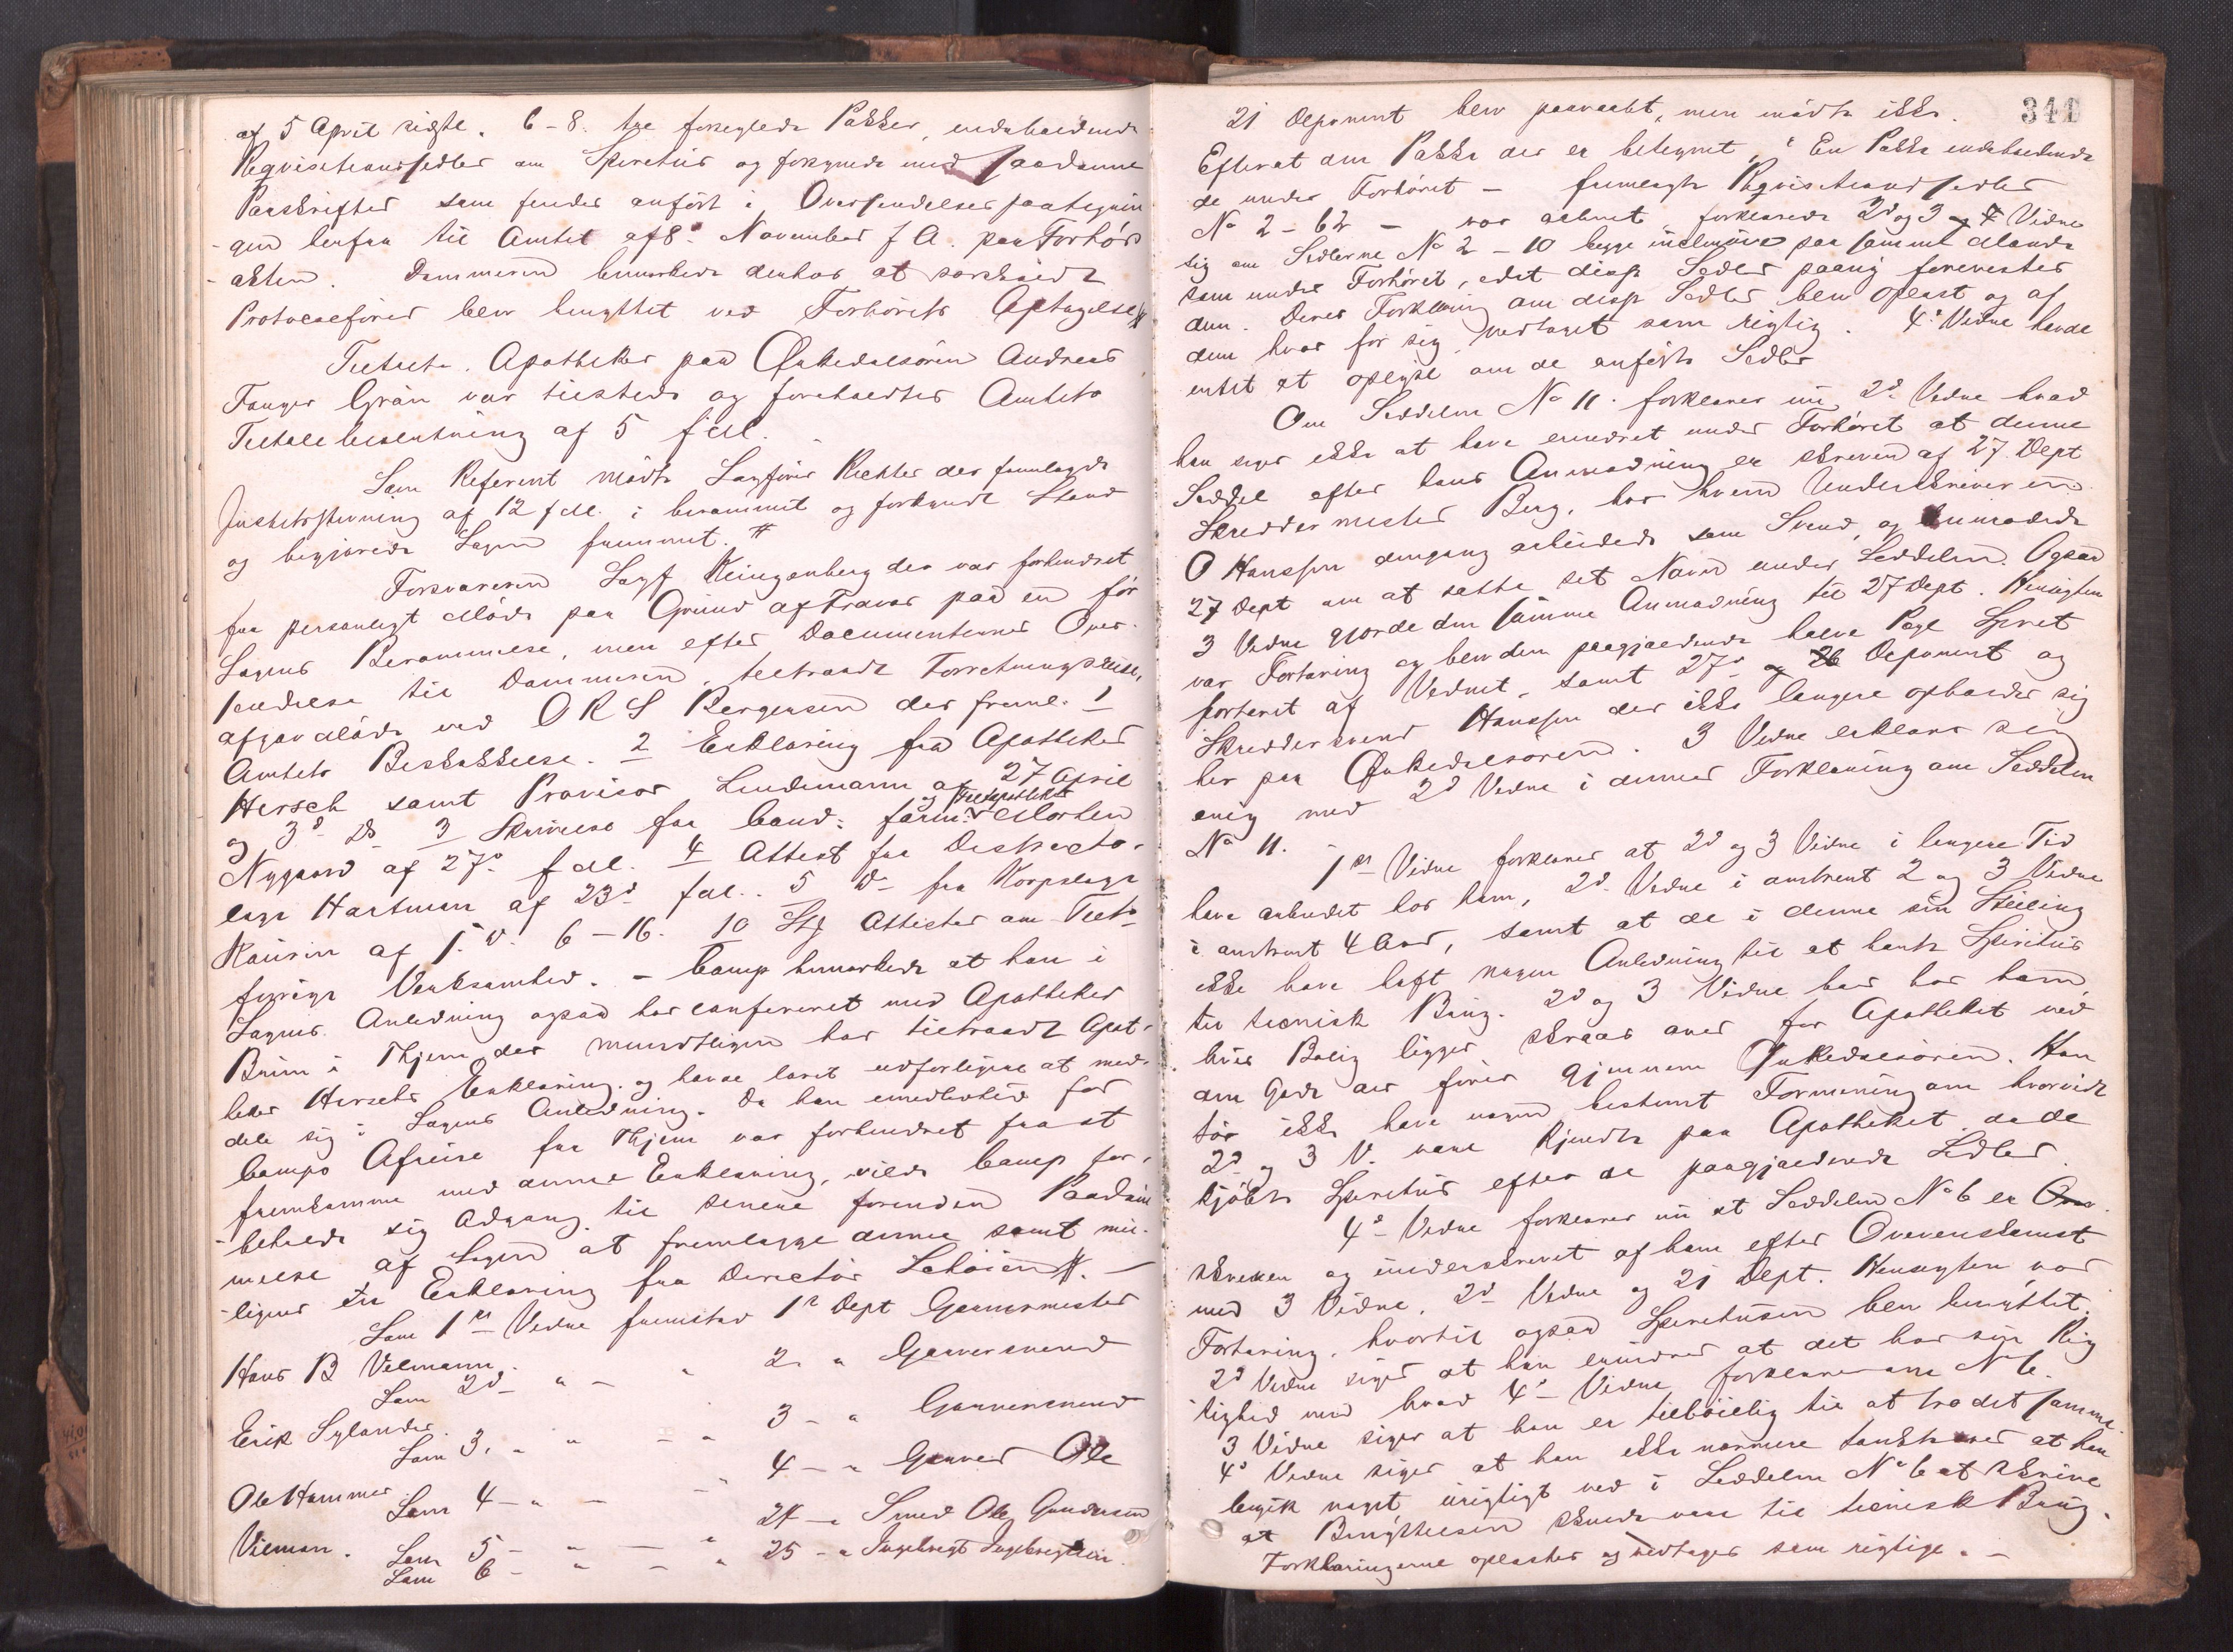 af 5 April sidstl. 6-8. tre forseglede Pakker, indeholdende
Reqvisitionssedler om Spiritus og forsynede med saadanne
Paaskrifter som findes anført i Oversendelsespaategnin
-gen herfra til Amtet af 8de November f A. paa Forhørs
-akten. Dommeren bemærkede derhos at særskildt
Protocolfører blev benyttet ved Forhørets Optagelse
Tiltalte. Apotheker paa Ørkedalsøren Andreas
Fanger Grøn var tilstede og foreholdtes Amtets
Tiltalebeslutning af 5 f M.
Som Referent mødte Sagfører Richter der fremlagde
Justitsstevning af 12 f M. i berammet og forkyndt Stand
og begjærede Sagen fremmet.
Forsvareren Sagf Klingenberg der var forhindret
fra personligt Møde paa Grund af Fravær paa en før
Sagens Berammelse, men efter Documenternes Over-
sendelse til Dommeren, tiltraadt Forretningsreise,
afgav Møde ved O R S Bergersen der freml. 1
Amtets Beskikkelse. 2 Erklæring fra Apotheker
Hersch samt Provisor Lindemann af 27 April
og 3d Ds 3 Skrivelse fra Cand: farm: og Feltapotheker Morten
Nygaard af 27d f M. 4 Attest fra Districts-
læge Hartman af 23d f M.. 5 Do fra Korpslæge
Kaurin af 1. D. 6-16. 10 Stk Attester om Tilt's
forrige Virksomhed. - Comp bemærkede at han i
Sagens Anledning ogsaa har confereret med Apotheker
Bruun i Thjem der mundtligen har tiltraadt Apot-
heker Herschs Erklæring. og havde lovet udførligere at med-
dele sig i Sagens Anledning. Da han imidlertid før
Comps Afreise fra Thjem var forhindret fra at
fremkomme med denne Erklæring, vilde Comp for-
-beholde sig Adgang til senere forinden Paadøm
melse af Sagen at fremlægge denne samt mu-
-ligens en Erklæring fra Director Schiøtz.
Som 1ste Vidne fremstod 1ste Dept Garvermester
Hans B Vilmann.
Som 2d " - " 2. " Garversvend
Erik Sylander.
Som 3. " " - " 3 - " Garversvend
Ole Hammer.
Som 4 - " - - " 4 - " Garver Ole
Vilman.
Som 5 - " - " 24 - " Smed Ole Gundersen
Som 6 - " - " 25 - " Ingebregt Ingebregtsen.
341
21 Deponent blev paaraabt, men mødte ikke.
Efterat den Pakke der er betegnet, "En Pakke indeholdende
de under Forhøret - fremlagte Reqvisitionssedler
No 2-62 - var aabnet forklarede 2d og 3 Vidne
sig om Sedlerne No 2-10 begge inclusive paa samme Maade
som under Forhøret, idet disse Sedler paany forevistes
dem. Deres Forklaring om disse Sedler blev oplæst og af
dem hver for sig vedtaget som rigtig. 4de Vidne havde
intet at oplyse om de anførte Sedler
Om Seddelen No 11. forklarer nu 2d Vidne hvad
han siger ikke at have erindret under Forhøret at denne
Seddel efter hans Anmodning er skreven af 27. Dept
Skreddermester Berg, hos hvem Underskriveren
O Hanssen dengang arbeidede som Svend, og anmodede
27 Dept om at sætte sit Navn under Seddelen. Ogsaa
3 Vidne gjorde den samme Anmodning til 27 Dept. Hensigten
var Fortæring og blev den paagjældende halve Pægl Spirit
fortæret af Vidnet, samt 27d og 26 Deponent og
Skreddersvend Hanssen der ikke længere opholder sig
her paa Ørkedalsøren. 3 Vidne erklærer sig
enig med 2d Vidne i dennes Forklaring om Seddelen
No 11.
1ste Vidne forklarer at 2d og 3 Vidne i længere Tid
have arbeidet hos ham, 2d Vidne i omtrent 2 og 3 Vidne
i omtrent 4 Aar, samt at de i denne sin Stilling
ikke have haft nogen Anledning til at hente Spiritus
til technisk Brug. 2d og 3 Vidne bor hos ham,
hvis Bolig ligger skraas over for Apotheket ved
den Gade der fører gjennem Ørkedalsøren. Han
tør ikke have nogen bestemt Formening om hvorvidt
2d og 3 V. vare kjendte paa Apotheket. da de
kjøbte Spiritus efter de paagjældende Sedler.
4de Vidne forklarer nu at Seddelen No 6 er
skreven og underskrevet af ham efter Overenskomst
med 3 Vidne, 2d Vidne og 21 Dept. Hensigten var
Fortæring. hvortil ogsaa Spiritusen blev benyttet.
2d Vidne siger at han erindrer at det har sin Rig
tighed med hvad 4de Vidne forklarer om No 6.
3 Vidne siger at han er tilbøielig til at tro det samme.
4de Vidne siger at han ikke nærmere tænkte over at han
begik noget urigtigt ved i Seddelen No 6 at skrive
at Benyttelsen skulde være til technisk Brug.
Forklaringerne oplæstes og vedtages som rigtige. -